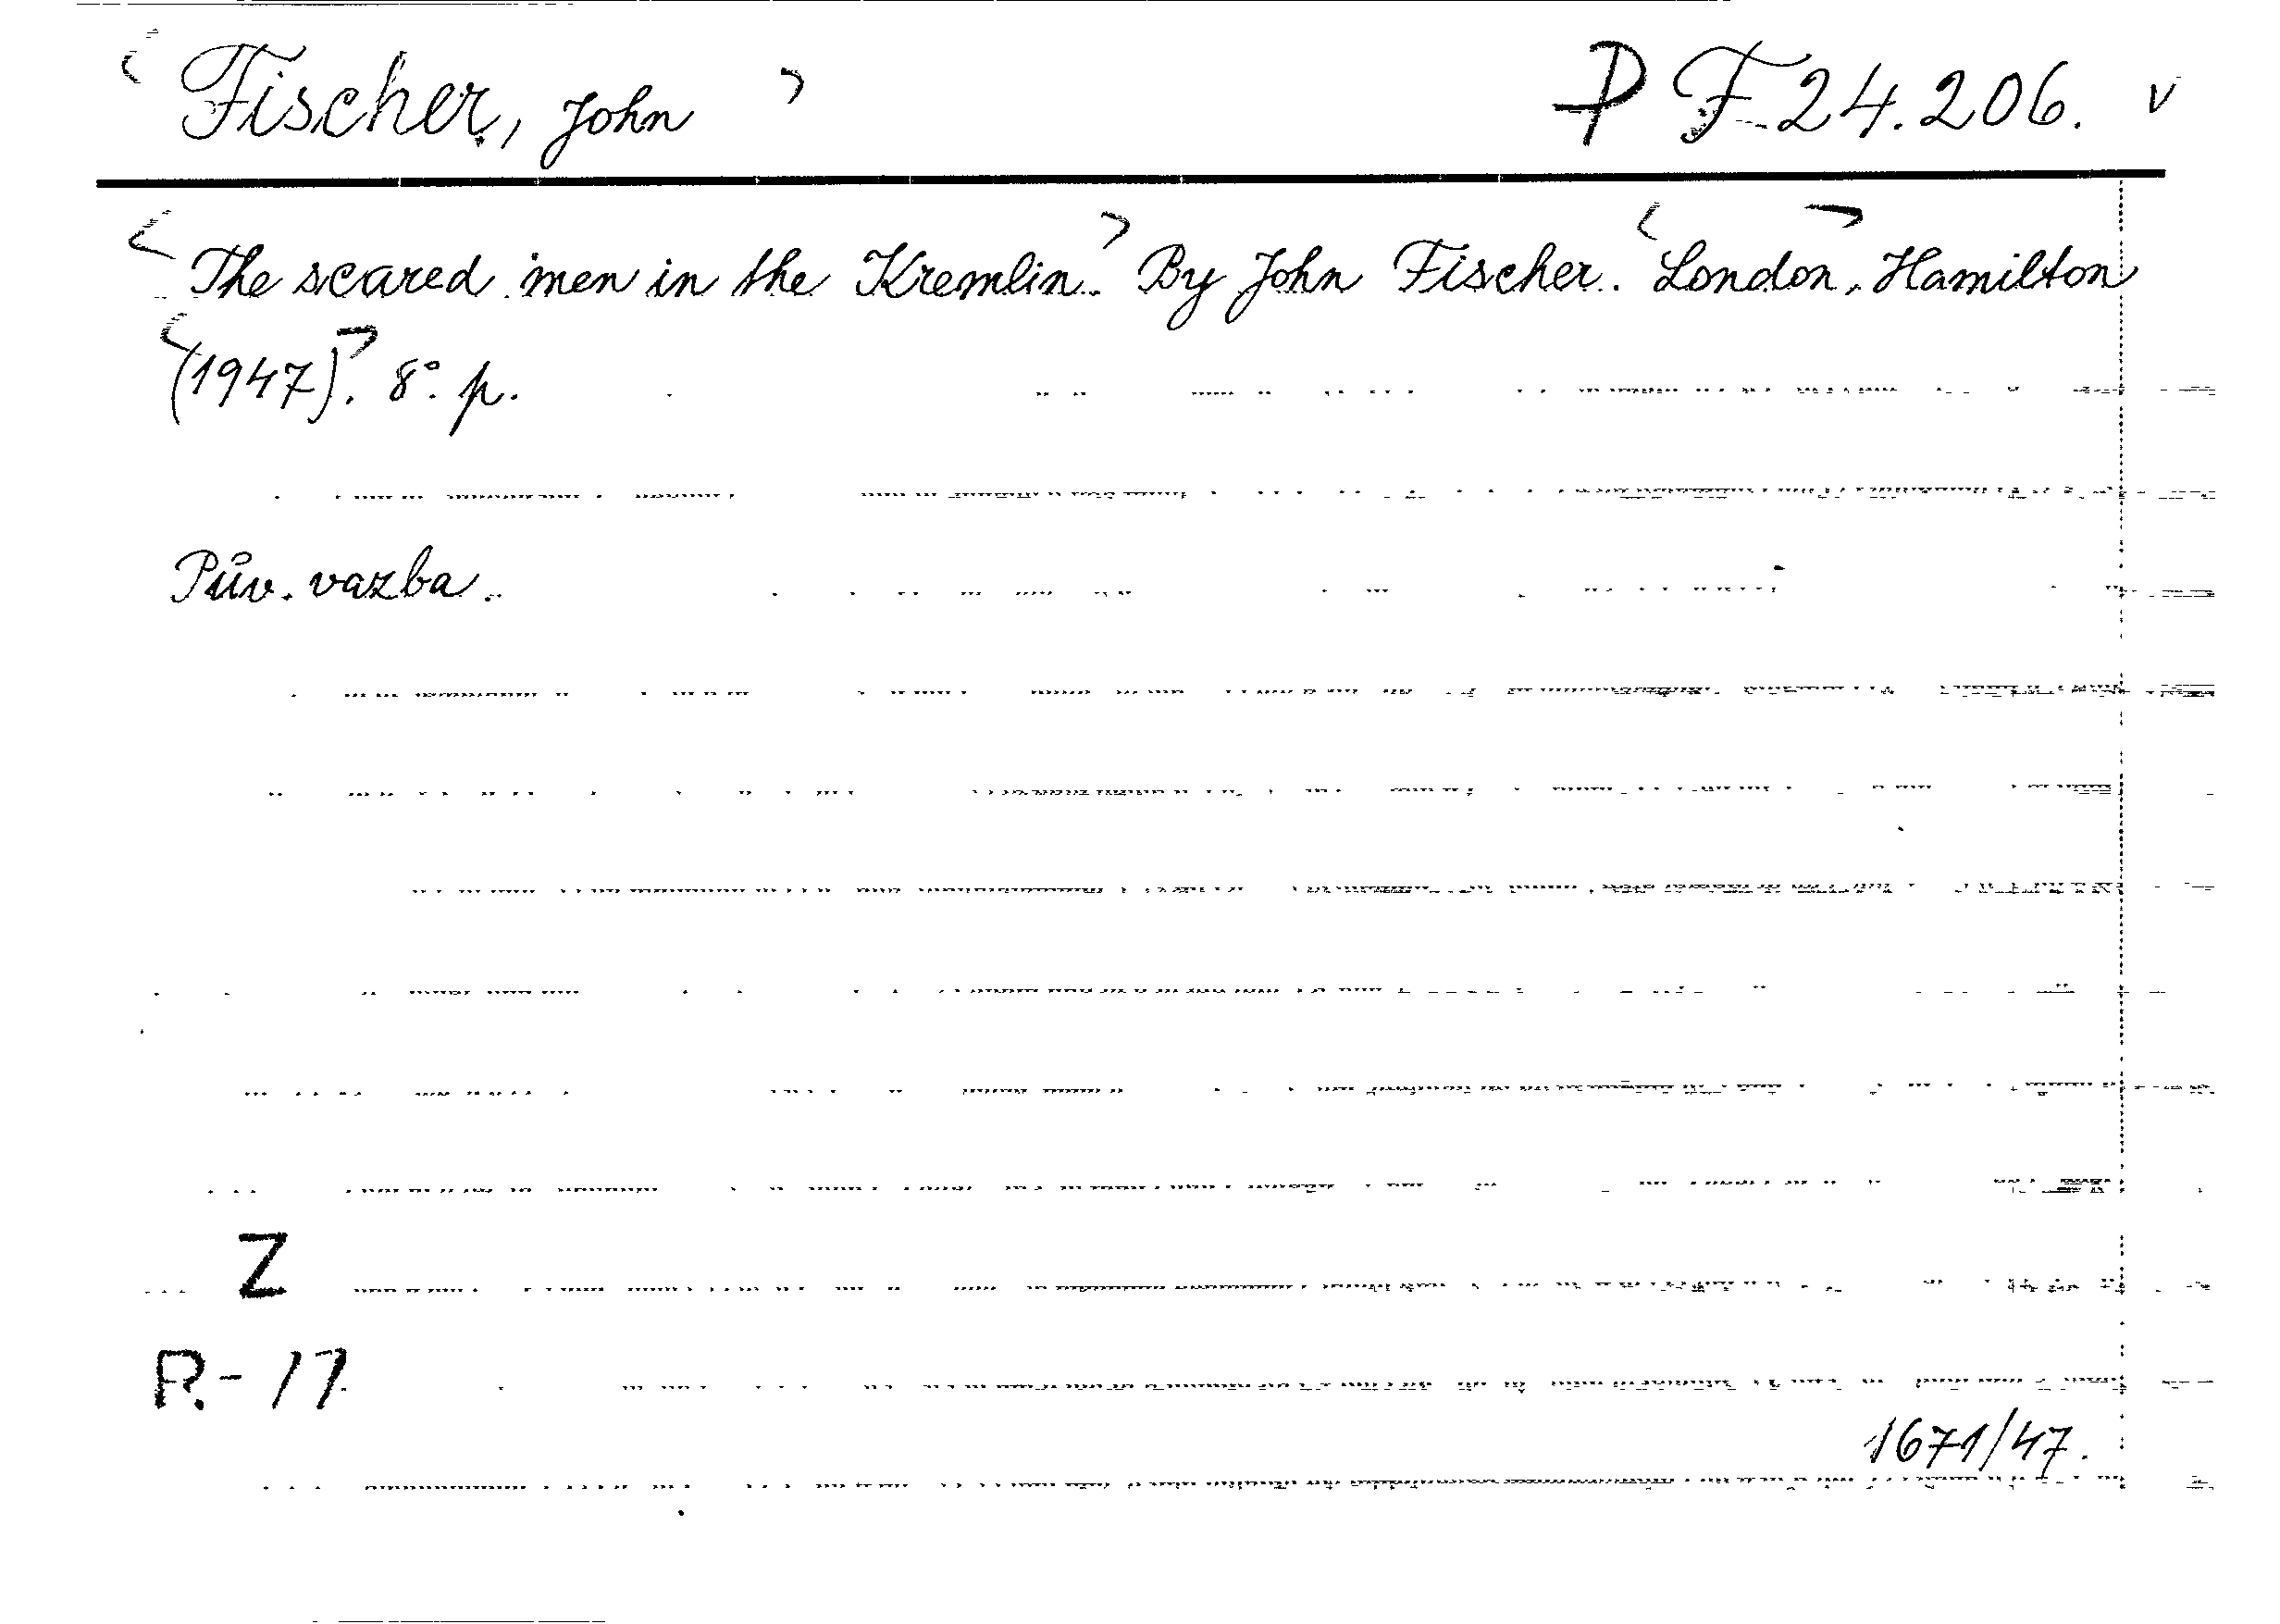 <Fischer, John> P F 24.206. v
<The scared men in the Kremlin.> By John Fischer. <London>, Hamilton
<(1947)>. 8°. p.
Pův. vazba.
Z
P.-17
1671/47.